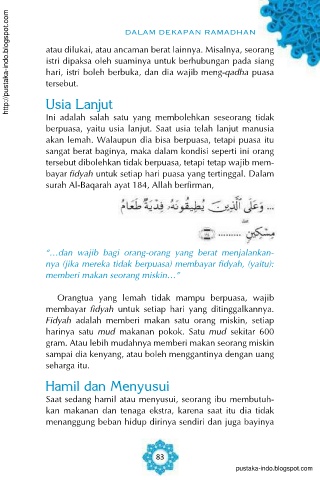 http://pustaka-indo.blogspot.com
DALAM DEKAPAN RAMADHAN
atau dilukai, atau ancaman berat lainnya. Misalnya, seorang
istri dipaksa oleh suaminya untuk berhubungan pada siang
hari, istri boleh berbuka, dan dia wajib meng-qadha puasa
tersebut.
Usia Lanjut
Ini adalah salah satu yang membolehkan seseorang tidak
berpuasa, yaitu usia lanjut. Saat usia telah lanjut manusia
akan lemah. Walaupun dia bisa berpuasa, tetapi puasa itu
sangat berat baginya, maka dalam kondisi seperti ini orang
tersebut dibolehkan tidak berpuasa, tetapi tetap wajib mem-
bayar fidyah untuk setiap hari puasa yang tertinggal. Dalam
surah Al-Baqarah ayat 184, Allah berfirman,
... وَعَلَى ٱلَّذِينَ يُطِيقُونَهُۥ فِدْيَةٌ طَعَامُ
مِسْكِينٍ ۖ ......... ﴿١٨٤﴾
“…dan wajib bagi orang-orang yang berat menjalankan-
nya (jika mereka tidak berpuasa) membayar fidyah, (yaitu):
memberi makan seorang miskin…”
Orangtua yang lemah tidak mampu berpuasa, wajib
membayar fidyah untuk setiap hari yang ditinggalkannya.
Fidyah adalah memberi makan satu orang miskin, setiap
harinya satu mud makanan pokok. Satu mud sekitar 600
gram. Atau lebih mudahnya memberi makan seorang miskin
sampai dia kenyang, atau boleh menggantinya dengan uang
seharga itu.
Hamil dan Menyusui
Saat sedang hamil atau menyusui, seorang ibu membutuh-
kan makanan dan tenaga ekstra, karena saat itu dia tidak
menanggung beban hidup dirinya sendiri dan juga bayinya
83
pustaka-indo.blogspot.com